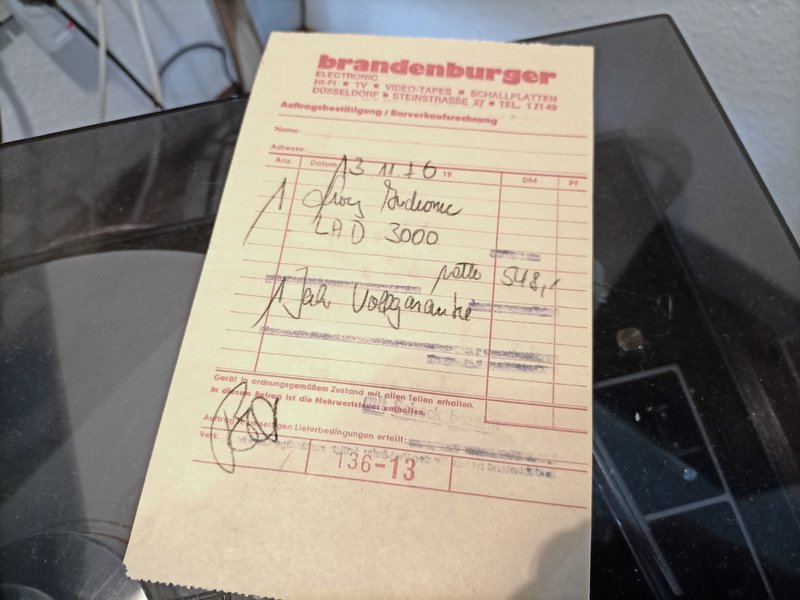 brandenburger
ELECTRONIC
HI-FI ■ TV ■ VIDEO-TAPES ■ SCHALLPLATTEN
DÜSSELDORF ■ STEINSTRASSE 27 ■ TEL. 17149
Auftragsbestätigung / Barverkaufsrechnung
Name:
Adresse:
Anz. Datum 13 11 76 19 DM Pf
1
LAD 3000
netto 548,-
1 Jahr Vollgarantie
Gerät in ordnungsgemäßem Zustand mit allen Teilen erhalten.
In diesem Betrag ist die Mehrwertsteuer enthalten.
Lieferbedingungen erteilt:
Verk.
136-13